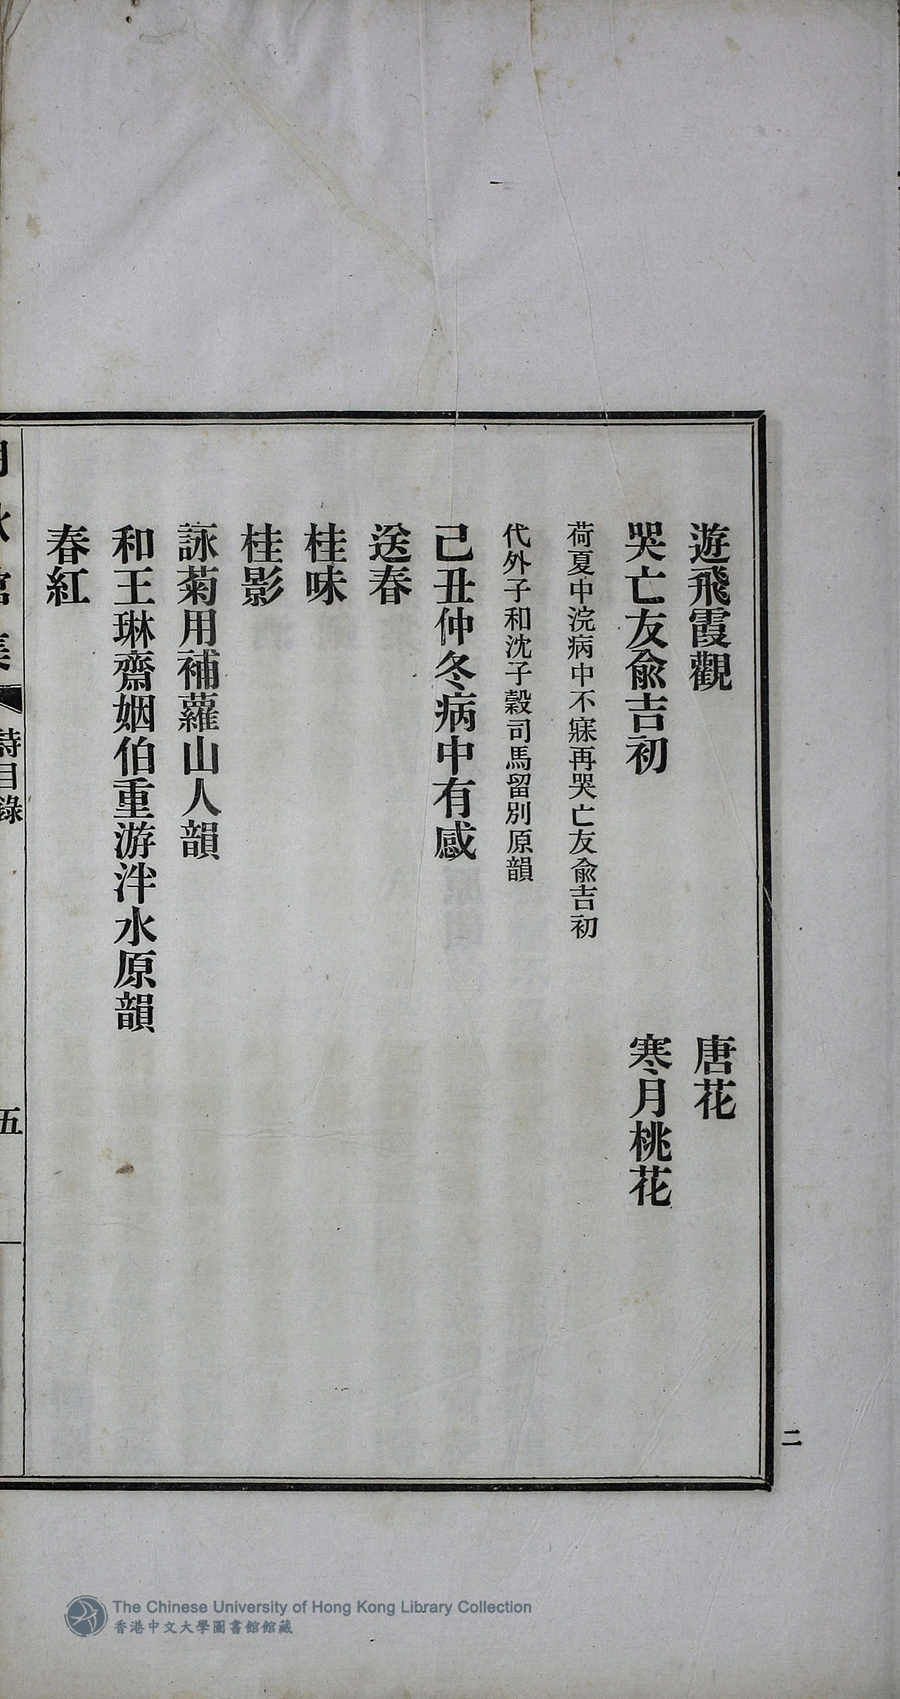 遊飛霞觀　唐花
哭亡友兪吉初　寒月桃花
荷夏中浣病中不寐再哭亡友兪吉初
代外子和沈子穀司馬留別原韻
己丑仲冬病中有感
送春
桂味
桂影
詠菊用補蘿山人韻
和王琳齋姻伯重游泮水原韻
春紅
詩目錄
五
二
The Chinese University of Hong Kong Library Collection
香港中文大學圖書館館藏